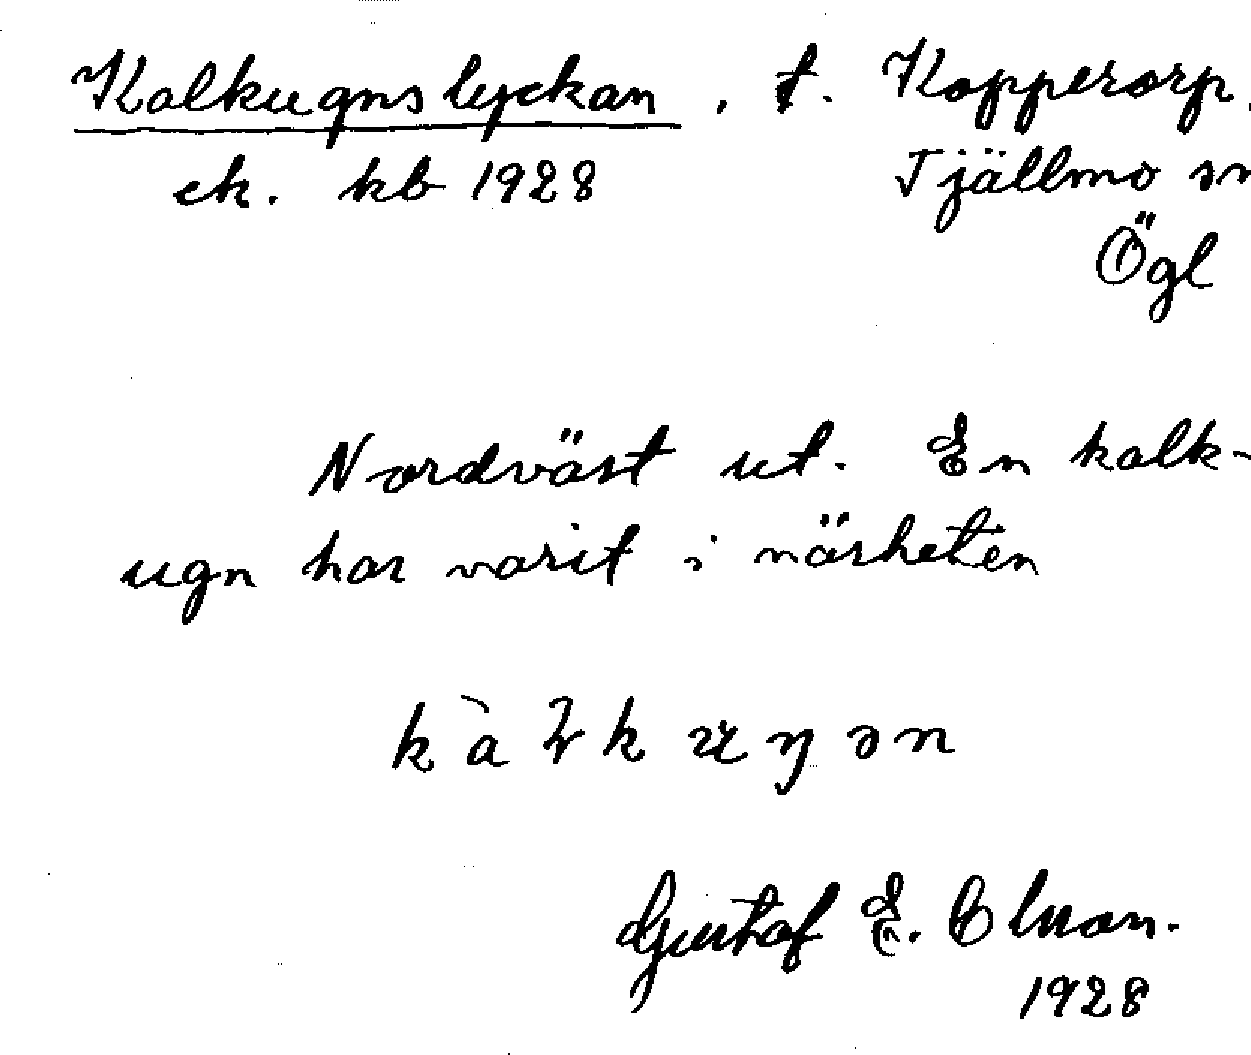 Kalkugnslyckan, t. Kopperorp,
ek. kb 1928 Tjällmo sn
Ögl
Nordväst ut. En kalk-
ugn har varit i närheten
Gustaf E. Olsson.
1928